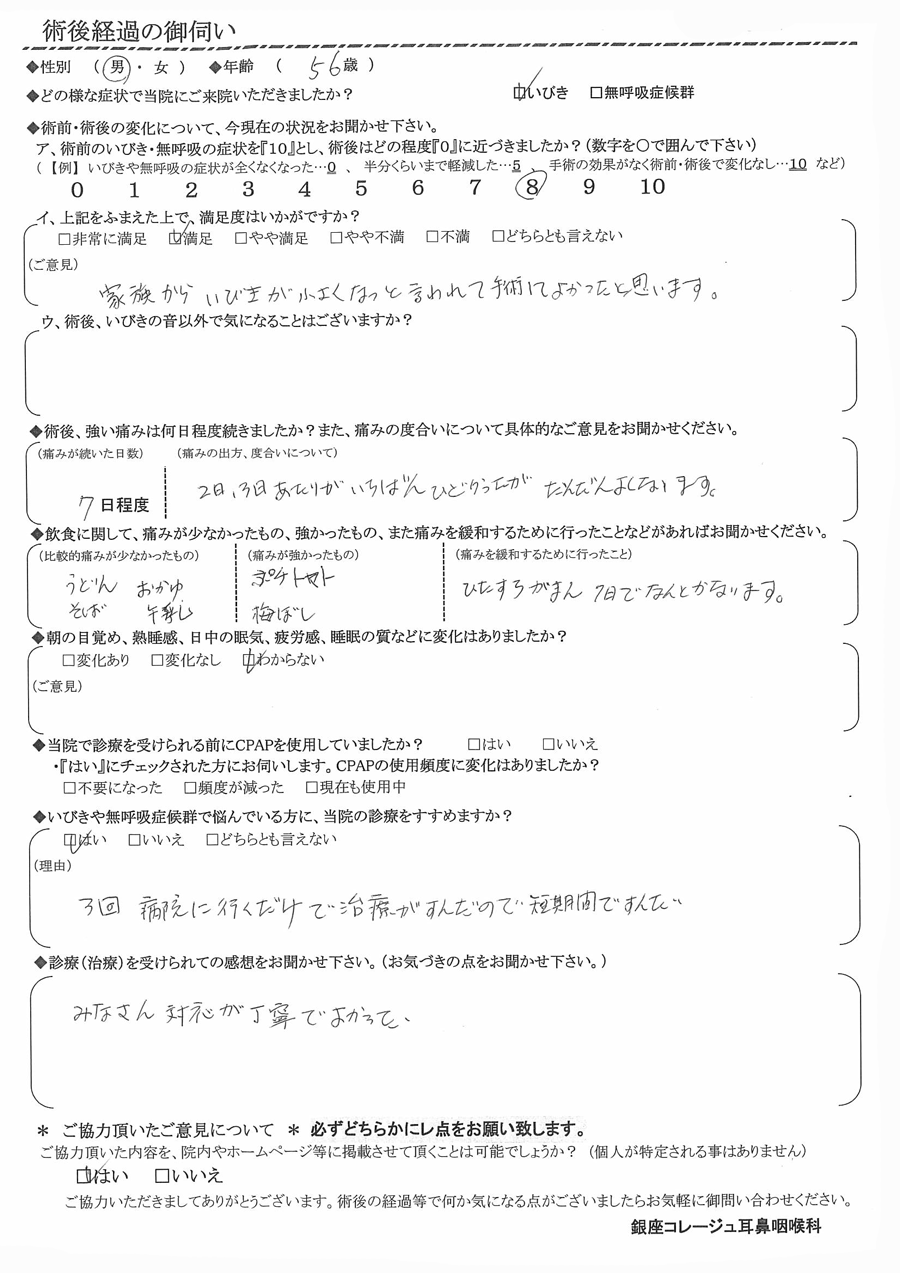 術後経過の御伺い
◆性別 ( 男 ・ 女 ) ◆年齢 ( 56歳 )
◆どの様な症状で当院にご来院いただきましたか? ☑いびき □無呼吸症候群
◆術前・術後の変化について、今現在の状況をお聞かせ下さい。
ア、術前のいびき・無呼吸の症状を『10』とし、術後はどの程度『0』に近づきましたか?(数字を〇で囲んで下さい)
(【例】いびきや無呼吸の症状が全くなくなった…0 、 半分くらいまで軽減した…5 、 手術の効果がなく術前・術後で変化なし…10 など)
0 1 2 3 4 5 6 7 8 9 10
イ、上記をふまえた上で、満足度はいかがですか?
□非常に満足 ☑満足 □やや満足 □やや不満 □不満 □どちらとも言えない
(ご意見)
家族から いびきが小さくなったと言われて手術してよかったと思います。
ウ、術後、いびきの音以外で気になることはございますか?
◆術後、強い痛みは何日程度続きましたか?また、痛みの度合いについて具体的なご意見をお聞かせください。
(痛みが続いた日数) (痛みの出方、度合いについて)
7日程度 2日、3日あたりが いちばん ひどかったが だんだんよくなります。
◆飲食に関して、痛みが少なかったもの、強かったもの、また痛みを緩和するために行ったことなどがあればお聞かせください。
(比較的痛みが少なかったもの) (痛みが強かったもの) (痛みを緩和するために行ったこと)
うどん おかゆ プチトマト ひたすらがまん 7日でなんとかなります。
そば 梅ぼし
◆朝の目覚め、熟睡感、日中の眠気、疲労感、睡眠の質などに変化はありましたか?
□変化あり □変化なし ☑わからない
(ご意見)
◆当院で診療を受けられる前にCPAPを使用していましたか? □はい □いいえ
・『はい』にチェックされた方にお伺いします。CPAPの使用頻度に変化はありましたか?
□不要になった □頻度が減った □現在も使用中
◆いびきや無呼吸症候群で悩んでいる方に、当院の診療をすすめますか?
☑はい □いいえ □どちらとも言えない
(理由)
3回 病院に行くだけで治療がすんだので 短期間ですんだ
◆診療(治療)を受けられての感想をお聞かせ下さい。(お気づきの点をお聞かせ下さい。)
みなさん 対応が丁寧でよかった、
* ご協力頂いたご意見について * 必ずどちらかにレ点をお願い致します。
ご協力頂いた内容を、院内やホームページ等に掲載させて頂くことは可能でしょうか? (個人が特定される事はありません)
☑はい □いいえ
ご協力いただきましてありがとうございます。術後の経過等で何か気になる点がございましたらお気軽に御問い合わせください。
銀座コレージュ耳鼻咽喉科